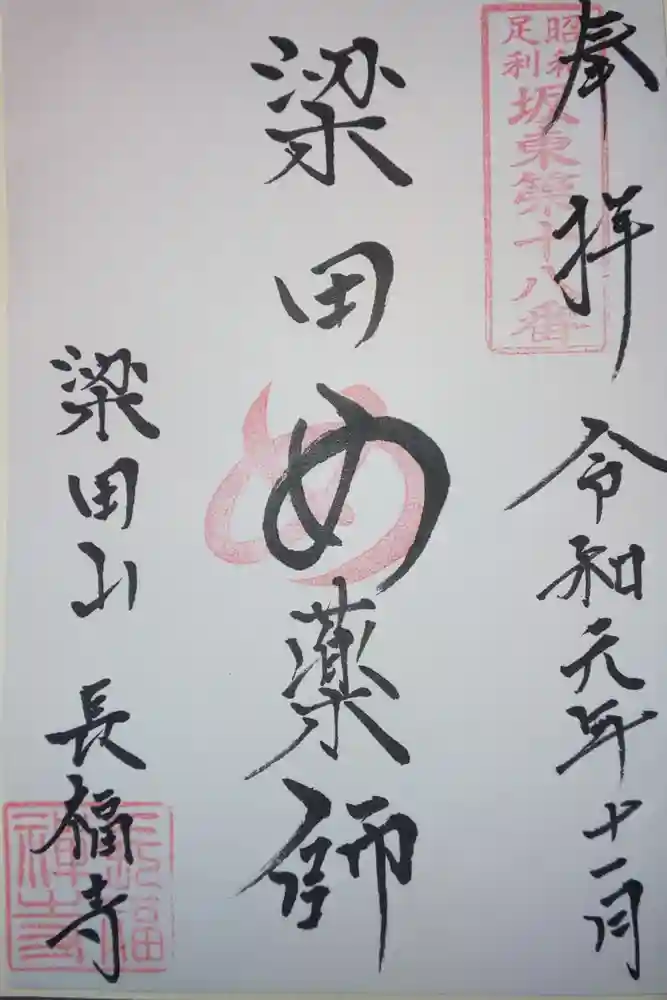 奉拝
令和元年十一月
昭和
足利
坂東第十八番
梁田め薬師
め
梁田山 長福寺
長福
禅寺